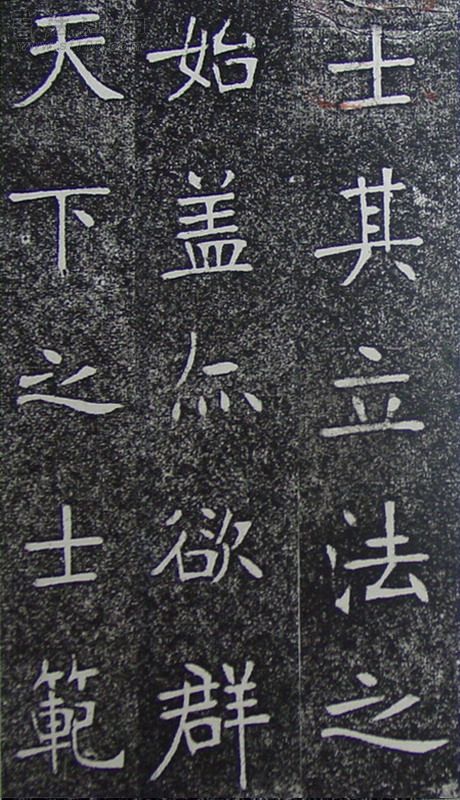 士其立法之
始盖亦欲群
天下之士範